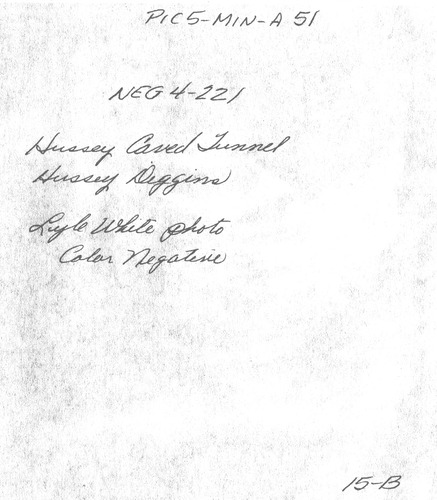 PIC5-MIN-A 51
NEG 4-221
Hussey Caved Tunnel
Hussey Diggins
Lyle White photo
Color Negative
15-B